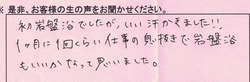 ※是非、お客様の生の声をお聞かせください。
初岩盤浴でしたが、いい汗かきました!!
1ヶ月に1回くらい仕事の息抜きで岩盤浴
もいいかなって思いました。